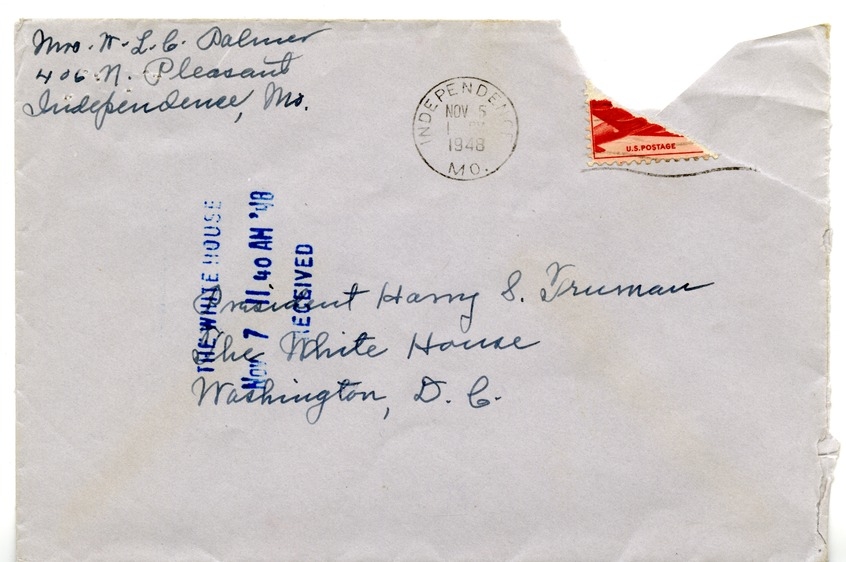 Mrs. W. L. C. Palmer
406 N. Pleasant
Independence, Mo.
INDEPENDENCE
NOV 5
1948
MO.
U.S. POSTAGE
THE WHITE HOUSE
NOV 7 11 40 AM '48
RECEIVED
President Harry S. Truman
The White House
Washington, D. C.